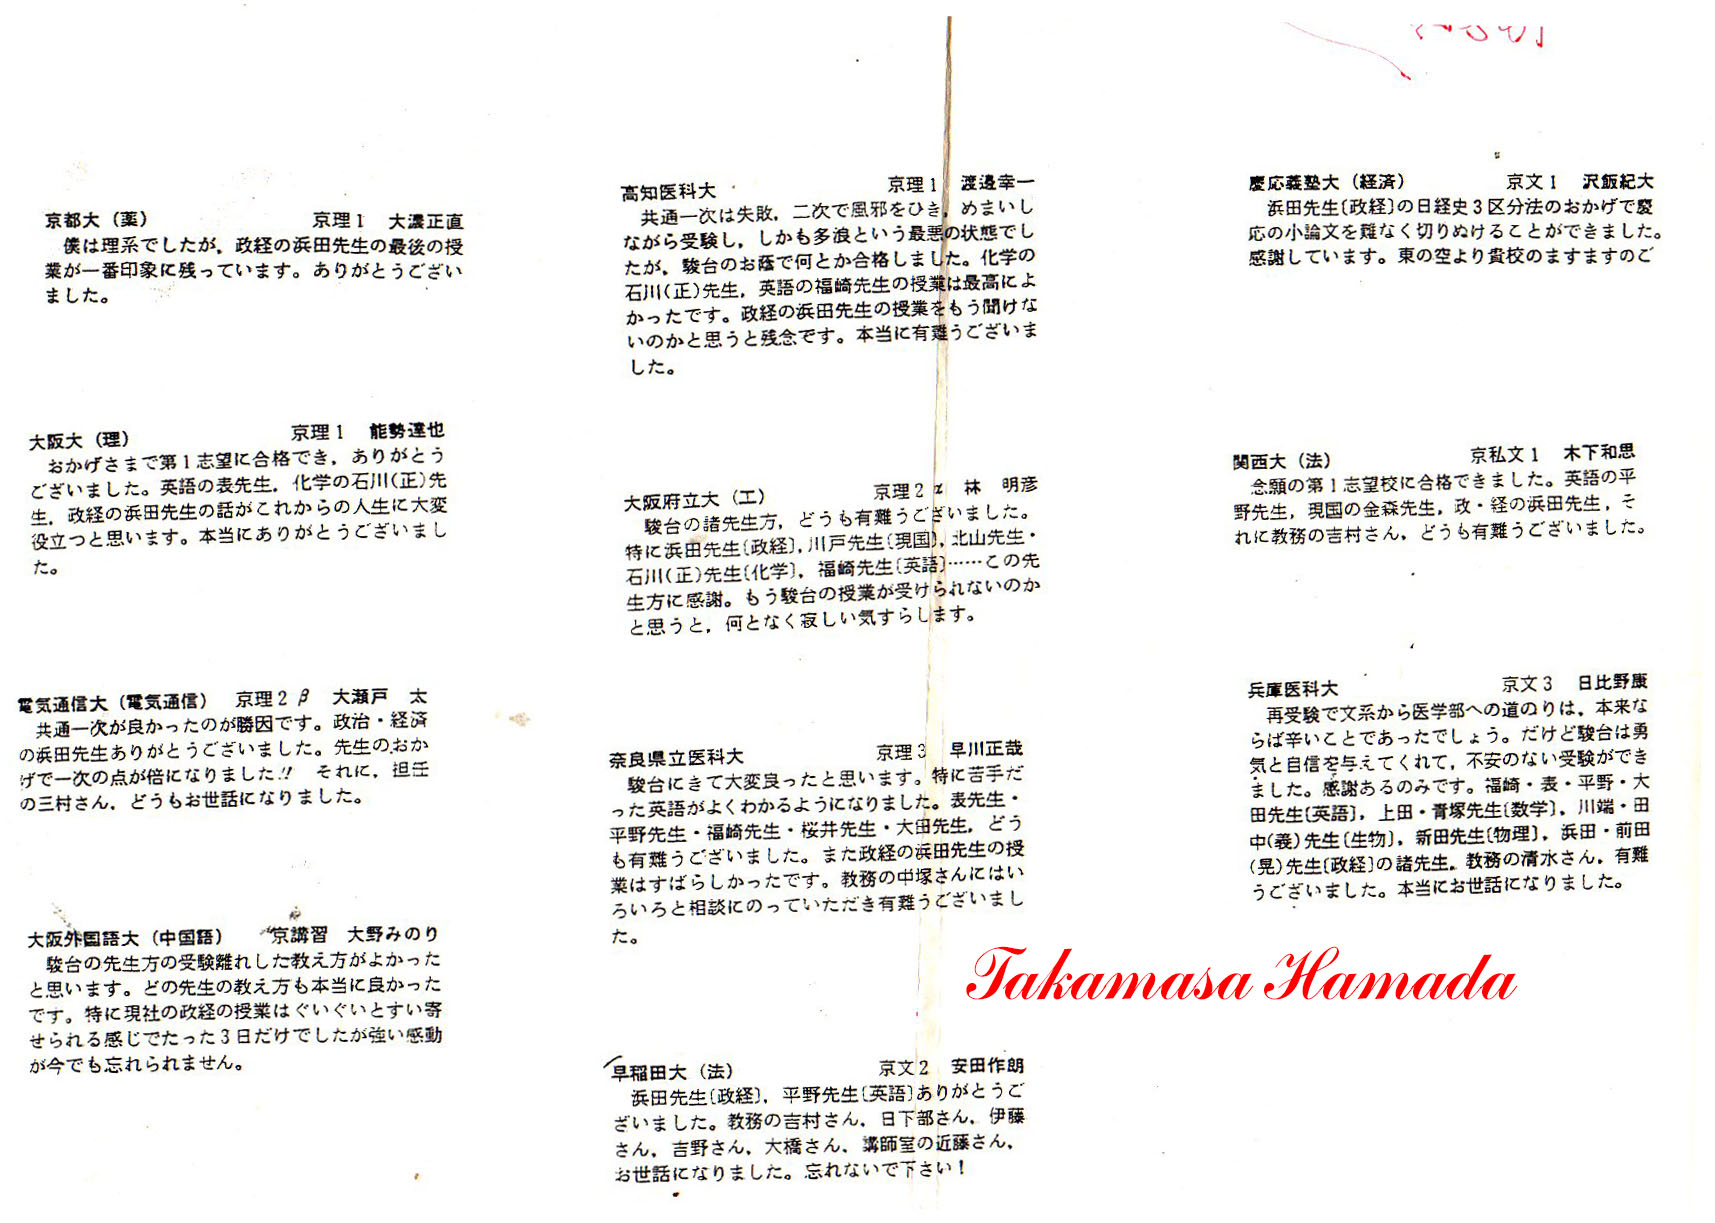 京都大（薬） 京理1 大濃正直
僕は理系でしたが，政経の浜田先生の最後の授
業が一番印象に残っています。ありがとうござい
ました。
大阪大（理） 京理1 能勢達也
おかげさまで第1志望に合格でき，ありがとう
ございました。英語の表先生，化学の石川(正)先
生，政経の浜田先生の話がこれからの人生に大変
役立つと思います。本当にありがとうございまし
た。
電気通信大（電気通信） 京理2β 大瀬戸 太
共通一次が良かったのが勝因です。政治・経済
の浜田先生ありがとうございました。先生のおか
げで一次の点が倍になりました!! それに，担任
の三村さん，どうもお世話になりました。
大阪外国語大（中国語） 京講習 大野みのり
駿台の先生方の受験離れした教え方がよかった
と思います。どの先生の教え方も本当に良かった
です。特に現社の政経の授業はぐいぐいとすい寄
せられる感じでたった3日だけでしたが強い感動
が今でも忘れられません。
高知医科大 京理1 渡邊幸一
共通一次は失敗，二次で風邪をひき，めまいし
ながら受験し，しかも多浪という最悪の状態でし
たが，駿台のお蔭で何とか合格しました。化学の
石川(正)先生，英語の福崎先生の授業は最高によ
かったです。政経の浜田先生の授業をもう聞けな
いのかと思うと残念です。本当に有難うございま
した。
大阪府立大（工） 京理2α 林 明彦
駿台の諸先生方，どうも有難うございました。
特に浜田先生〔政経〕，川戸先生〔現国〕，北山先生・
石川(正)先生〔化学〕，福崎先生〔英語〕……この先
生方に感謝。もう駿台の授業が受けられないのか
と思うと，何となく寂しい気すらします。
奈良県立医科大 京理3 早川正哉
駿台にきて大変良ったと思います。特に苦手だ
った英語がよくわかるようになりました。表先生・
平野先生・福崎先生・桜井先生・大田先生，どう
も有難うございました。また政経の浜田先生の授
業はすばらしかったです。教務の中塚さんにはい
ろいろと相談にのっていただき有難うございまし
た。
早稲田大（法） 京文2 安田作朗
浜田先生〔政経〕，平野先生〔英語〕ありがとうご
ざいました。教務の吉村さん，日下部さん，伊藤
さん，吉野さん，大橋さん，講師室の近藤さん，
お世話になりました。忘れないで下さい！
慶応義塾大（経済） 京文1 沢飯紀大
浜田先生〔政経〕の日経史3区分法のおかげで慶
応の小論文を難なく切りぬけることができました。
感謝しています。東の空より貴校のますますのご
関西大（法） 京私文1 木下和思
念願の第1志望校に合格できました。英語の平
野先生，現国の金森先生，政・経の浜田先生，そ
れに教務の吉村さん，どうも有難うございました。
兵庫医科大 京文3 日比野康
再受験で文系から医学部への道のりは，本来な
らば辛いことであったでしょう。だけど駿台は勇
気と自信を与えてくれて，不安のない受験ができ
ました。感謝あるのみです。福崎・表・平野・大
田先生〔英語〕，上田・青塚先生〔数学〕，川端・田
中(義)先生〔生物〕，新田先生〔物理〕，浜田・前田
(晃)先生〔政経〕の諸先生，教務の清水さん，有難
うございました。本当にお世話になりました。
Takamasa Hamada